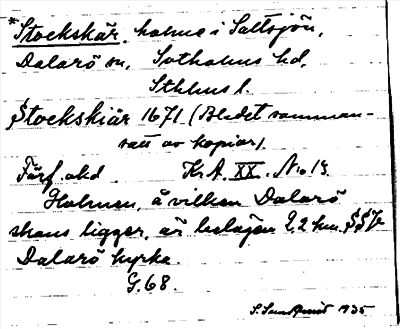 *Stockskär, holme i Saltsjön,
Dalarö sn, Sotholms hd,
Sthlms l.
Stockskiär 1671 (Bladet samman-
satt av kopior).
Förf. okd KrA. XX. No 13.
Holmen, å vilken Dalarö
skans ligger, är belägen 2,2 km.
Dalarö kyrka.
G. 68.
S. Sundqvist 1935